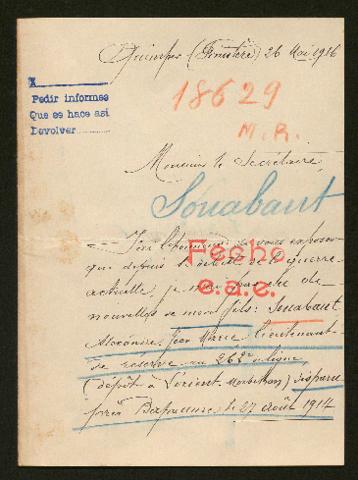 Quimper (Finistère) 26 Mai 1916
X
Pedir informes
Que es hace asi
Devolver
18629
M. R.
Monsieur le Secrétaire,
Souabaut
J'ai l'honneur de vous exposer
que depuis le début de la guerre
actuelle, je suis sans de
nouvelles de mon fils: Souabaut
Fecho
e.a.e.
Alexandre Jean Marie lieutenant
de réserve au 262e de ligne
(dépôt à Lorient Morbihan) disparu
près le 27 août 1914